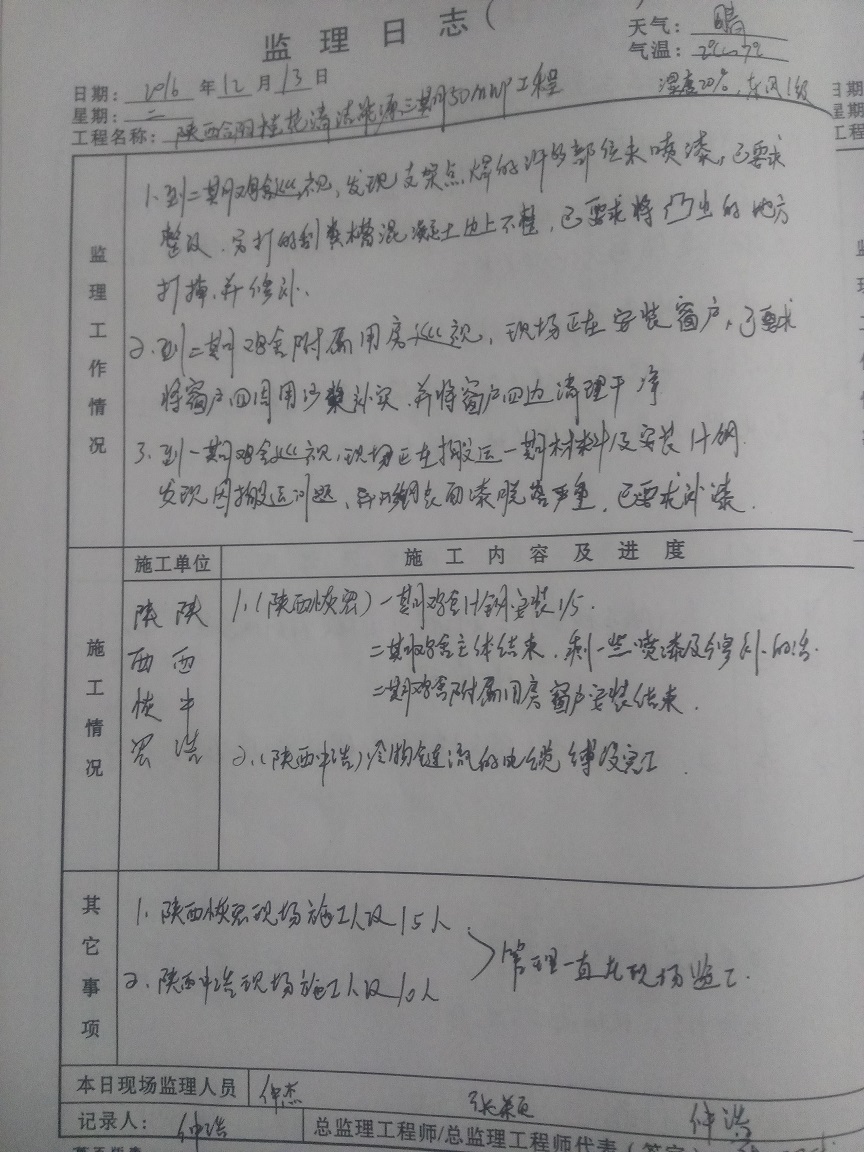 监理日志(
天气: 晴
气温: 2℃~7℃
湿度20%,东风1级
日期: 2016 年 12 月 13 日
星期: 二
工程名称: 陕西合羽桂花清洁能源三期50MWP工程
监理工作情况
1.到二期鸡舍巡视,发现支架点焊的许多部位未喷漆,已要求
整改.另打的刮粪槽混凝土边上不整,已要求将凸出的地方
打掉,并修补.
2.到二期鸡舍附属用房巡视,现场正在安装窗户,已要求
将窗户四周用沙浆补实.并将窗户四边清理干净
3.到一期鸡舍巡视,现场正在搬运一期材料及安装H钢.
发现因搬运问题,H钢表面漆脱落严重,已要求补漆.
施工情况
施工单位
施工内容及进度
陕西恢宏
陕西中浩
1.(陕西恢宏)一期鸡舍H钢安装1/5.
二期鸡舍主体结束.剩一些喷漆及修补的活.
二期鸡舍附属用房窗户安装结束.
2.(陕西中浩)冷链流的电缆
其它事项
1.陕西恢宏现场施工人员15人
2.陕西中浩现场施工人员10人
管理一直在现场监工.
本日现场监理人员 仲杰 张
记录人: 仲浩
总监理工程师/总监理工程师代表(签字) 仲浩